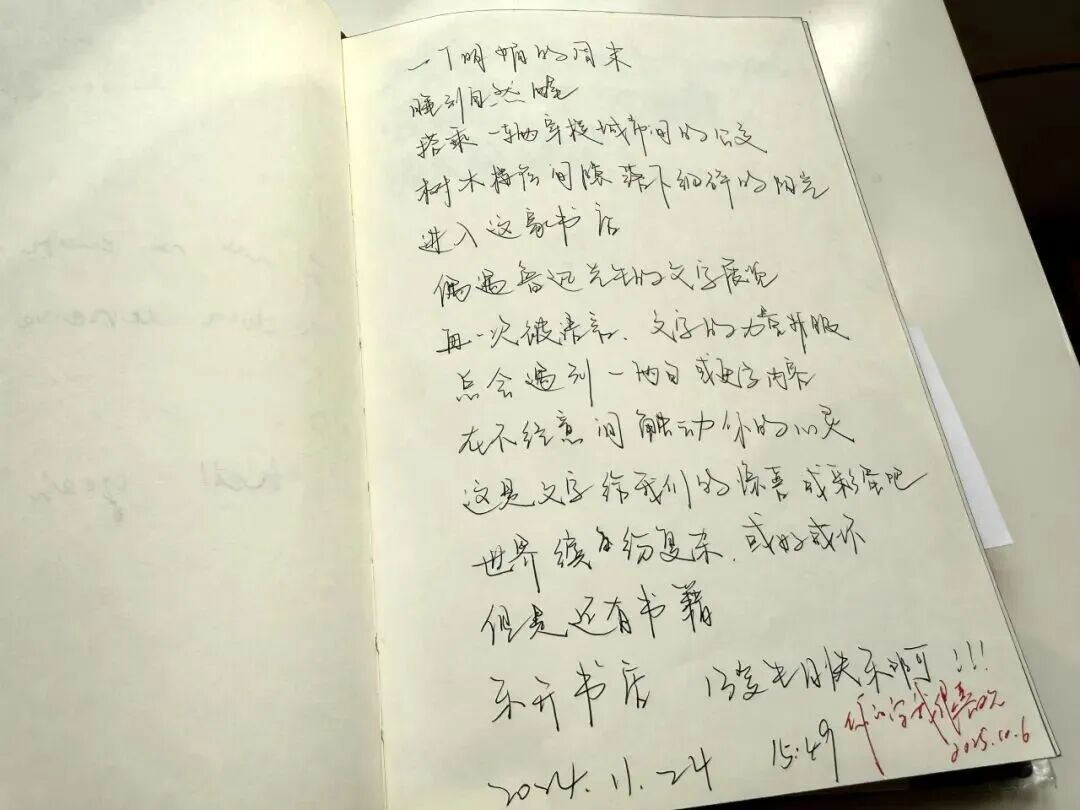 一个明媚的周末
睡到自然醒
搭乘一辆穿梭城市间的公交
树木梢间隙落下细碎的阳光
进入这家书店
偶遇鲁迅先生的文字展览
再一次被语言、文字的力量折服
总会遇到一两句或文字内容
在不经意间触动你的心灵
这是文字给我们的惊喜或彩蛋吧
世界缤纷复杂，或好或坏
但是还有书籍
乐开书店 13岁生日快乐啊！！！
2024.11.24 15:49
你的字我很喜欢
2025.10.6